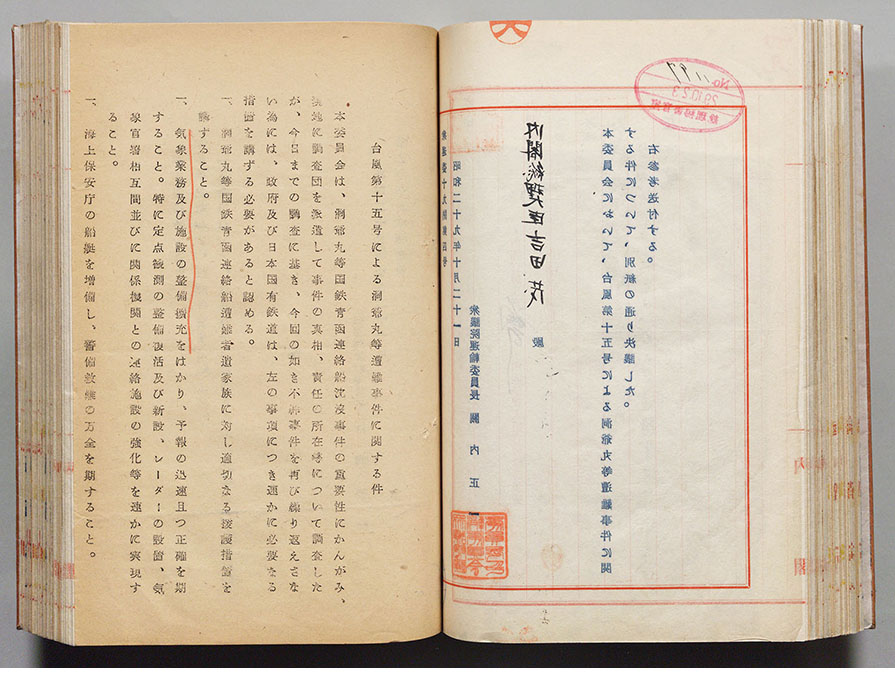 昭和二十九年十月二十一日
衆議院運輸委員長　關内正一
内閣総理大臣吉田茂　殿
本委員会において、台風第十五号による洞爺丸等遭難事件に関
する件について、別紙の通り決議した。
右参考送付する。
No. 1197
29.10.23
台風第十五号による洞爺丸等遭難事件に関する件
本委員会は、洞爺丸等国鉄青函連絡船沈没事件の重要性にかんがみ、
現地に調査団を派遣して事件の真相、責任の所在等について調査した
が、今日までの調査に基き、今回の如き不祥事件を再び繰り返えさな
い為には、政府及び日本国有鉄道は、左の事項につき速かに必要なる
措置を講ずる必要があると認める。
一、洞爺丸等国鉄青函連絡船遭難者遺家族に対し適切なる援護措置を
講ずること。
一、気象業務及び施設の整備拡充をはかり、予報の迅速且つ正確を期
すること。特に定点観測の整備復活及び新設、レーダーの設置、気
象官署相互間並びに関係機関との連絡施設の強化等を速かに実現す
ること。
一、海上保安庁の船艇を増備し、警備救難の万全を期すること。